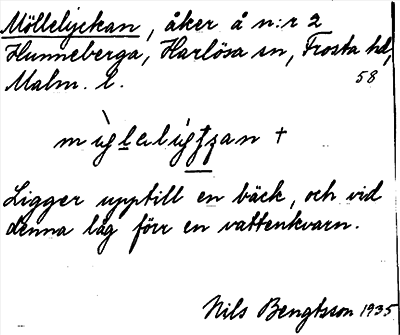 Möllelyckan, åker å n:r 2
Hunneberga, Harlösa sn, Frosta hd,
Malm. l. 58
Ligger upptill en bäck, och vid
denna låg förr en vattenkvarn.
Nils Bengtsson 1935